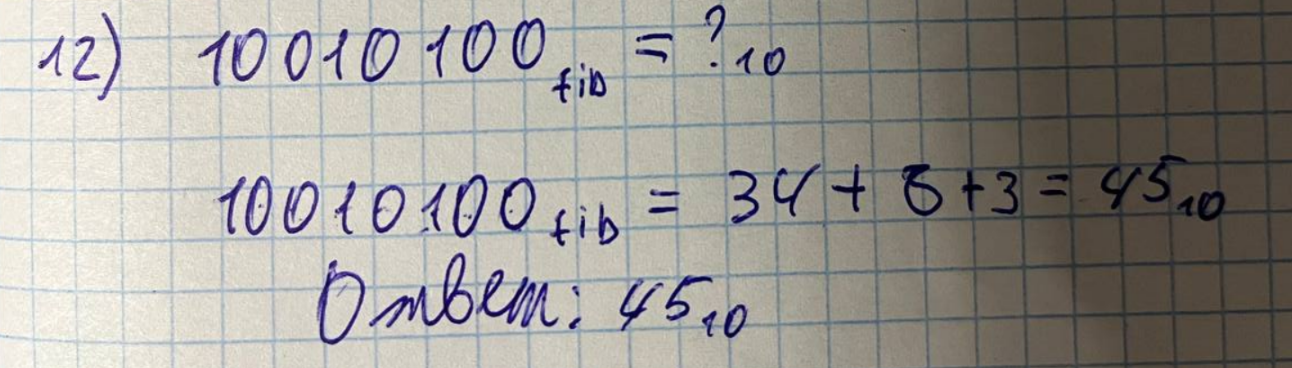 12) 10010100fib = ?10
10010100fib = 34 + 8 + 3 = 4510
Ответ: 4510